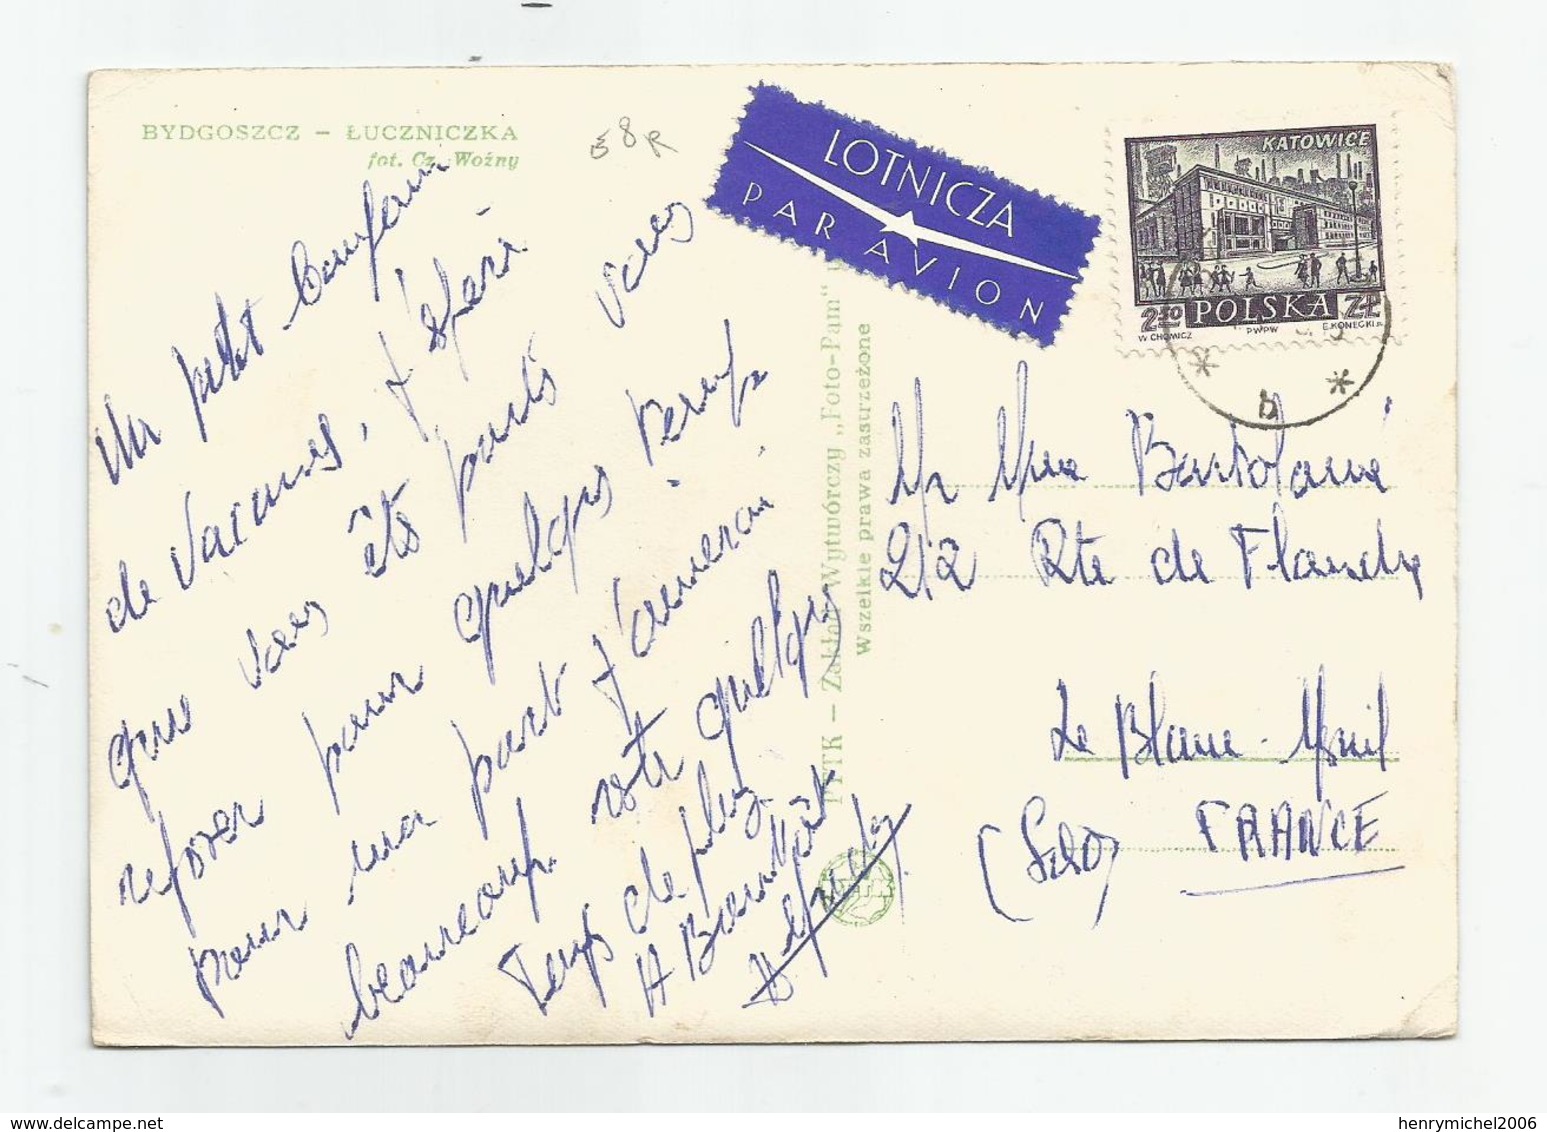 BYDGOSZCZ – ŁUCZNICZKA
fot. Cz. Woźny
58 R
LOTNICZA
PAR AVION
KATOWICE
2 50 POLSKA ZŁ
W CHOMICZ PWPW E. KONECKI
* b *
Un petit
de Vacances, j'éspère
que vous êts partis vous
reposer pour quelques temps.
pour ma part j'aimerai
beaucoup rster quelques
Temps de plus
PTTK – Zakład Wytwórczy „Foto-Pam"
Wszelkie prawa zastrzeżone
Mr Mme
212 Rte de Flandre
Le Blanc-Mesnil
FRANCE
henrymichel2006